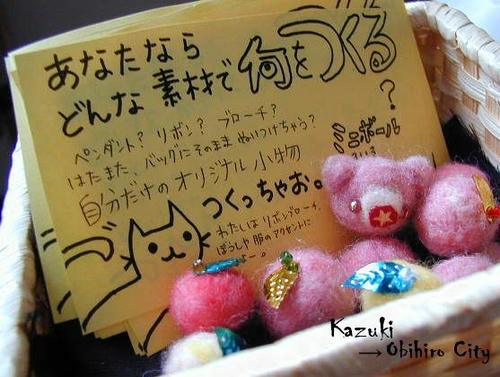 あなたなら
どんな素材で何をつくる
?
ペンダント? リボン? ブローチ?
はたまた、バッグにそのままぬいつけちゃう?
自分だけのオリジナル小物
つくっちゃお。
ミニボール
わたしは リボンブローチ、
ぼうしや服のアクセントに
Kazuki
→ Obihiro City